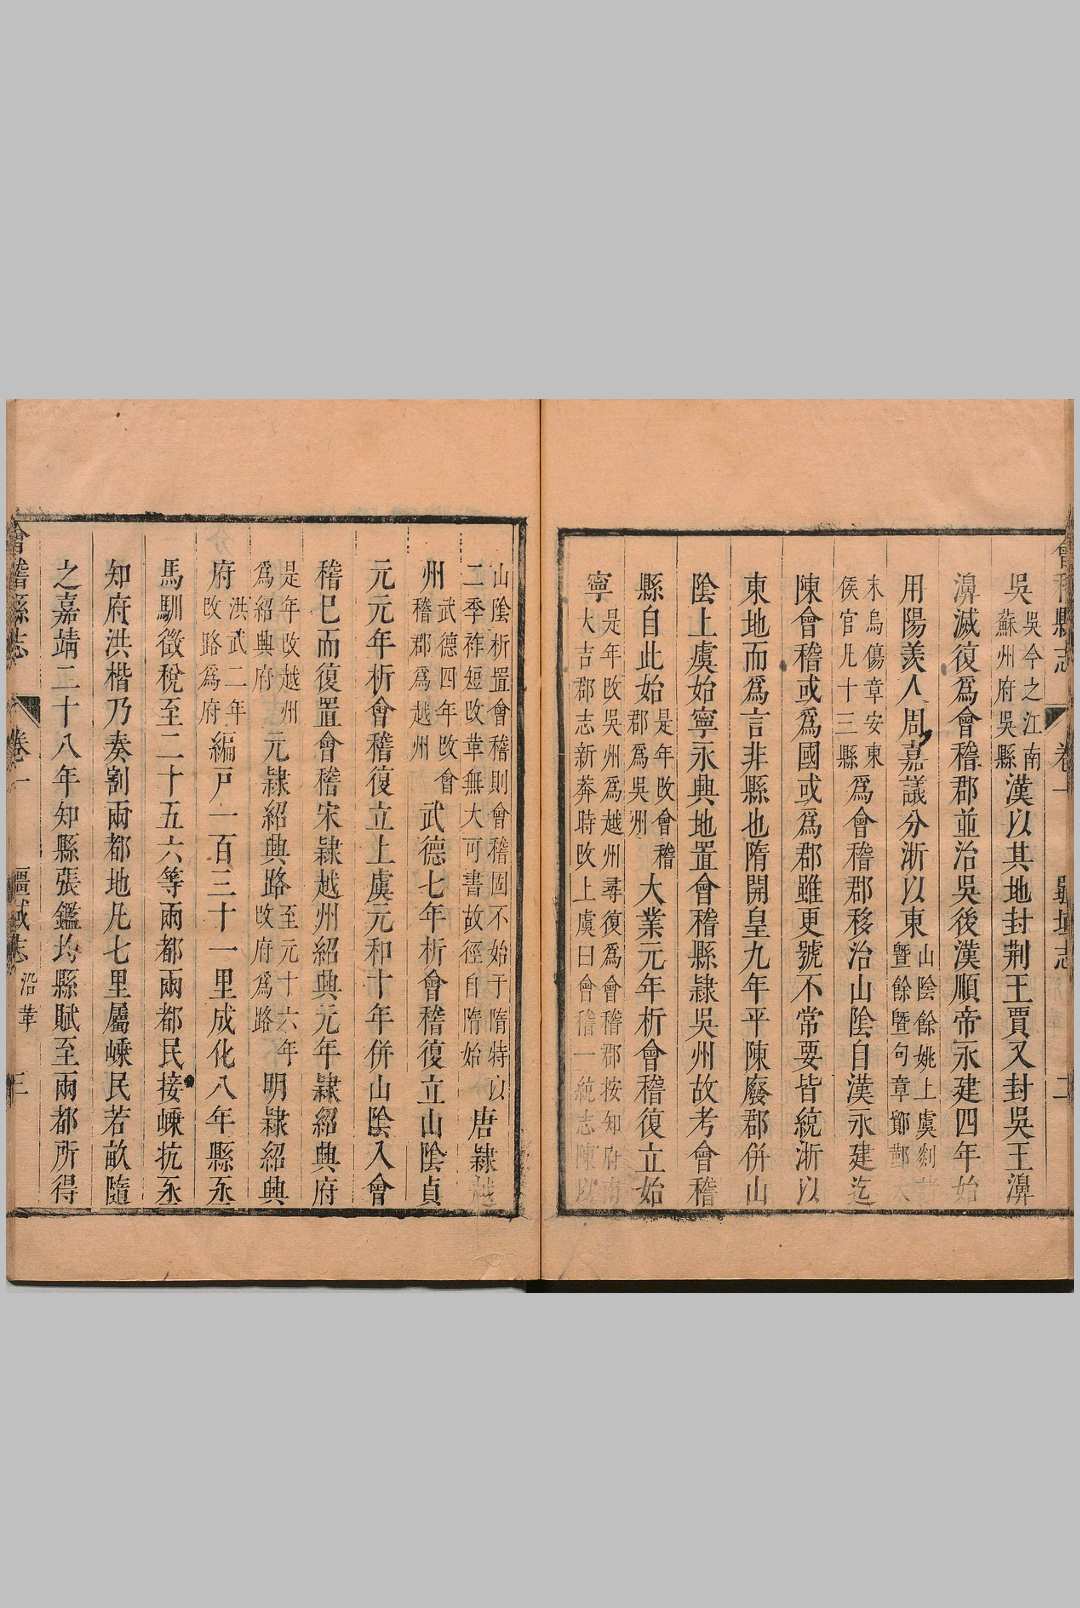 會稽縣志 卷一 疆域志 二
吳 吳今之江南蘇州府吳縣 漢以其地封荆王賈又封吳王濞
濞滅復爲會稽郡並治吳後漢順帝永建四年始
用陽羨人周嘉議分浙以東 山陰餘姚上虞剡諸暨餘暨句章鄞鄮太
末烏傷章安東侯官凡十三縣 爲會稽郡移治山陰自漢永建迄
陳會稽或爲國或爲郡雖更號不常要皆統浙以
東地而爲言非縣也隋開皇九年平陳廢郡併山
陰上虞始寧永興地置會稽縣隷吳州故考會稽
縣自此始 是年改會稽郡爲吳州 大業元年析會稽復立始
寧 是年改吳州爲越州尋復爲會稽郡按知府南大吉郡志新莽時改上虞曰會稽一統志陳以
山陰析置會稽則會稽固不始于隋特以二季祚短改革無大可書故徑自隋始 唐隷越
州 武德四年改會稽郡爲越州 武德七年析會稽復立山陰貞
元元年析會稽復立上虞元和十年併山陰入會
稽已而復置會稽宋隷越州紹興元年隷紹興府
是年改越州爲紹興府 元隷紹興路 至元十六年改府爲路 明隷紹興
府 洪武二年改路爲府 編戸一百三十一里成化八年縣丞
馬馴徵稅至二十五六等兩都兩都民接嵊抗丞
知府洪楷乃奏割兩都地凡七里屬嵊民若畝隨
之嘉靖二十八年知縣張鑑均縣賦至兩都所得
會稽縣志 卷一 疆域志 沿革 三